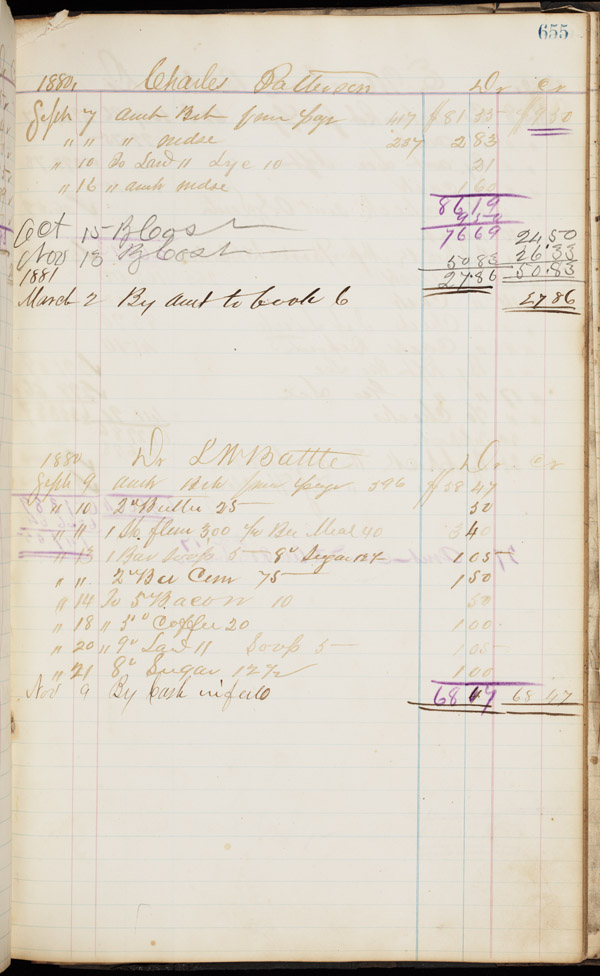 655
1880 Charles Patterson Dr Cr
Sept 7 amt Bot from page 417 $81 55 $9 50
" " " mdse 237 2 83
" 10 To Lard " Lye 10 21
" 16 " amt mdse
86 19
9 50
Oct 15 By Cash 76 69 24 50
Nov 13 By Cash 50 83 26 33
1881 27 86 50 83
March 2 By amt to book 6 27 86
1880 Dr L W Battle Dr Cr
Sept 9 amt Bot from page 396 $58 47
" 10 2 " Butter 25 50
" " 1 St. flour 300 ½ Bu Meal 40 3 40
" 13 1 Bar Soap 5 8 " Sugar 12½ 1 05
" " 2 " Bu Corn 75 1 50
" 14 To 5 " Bacon 10 50
" 18 " 5 " Coffee 20 1 00
" 20 " 9 " Lard 11 Soap 5 1 05
" 21 8 " Sugar 12½ 1 00
Nov 9 By Cash in full 68 47 68 47